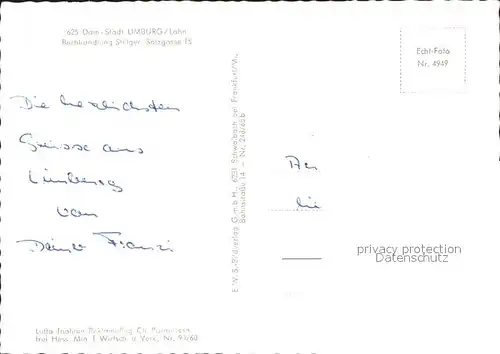 625 Dom-Stadt LIMBURG/Lahn
Buchhandlung Salzgasse 15
Echt-Foto
Nr. 4949
Die herzlichsten
Grüsse aus
Limburg
von
Deiner Franzi
E.W.S.-Bildverlag G.m.b.H., 6231 Schwalbach bei Frankfurt/M.,
Bahnstraße 14 – Nr. 248/65b
An
privacy protection
Datenschutz
frei Hess. Min. f. Wirtsch. u. Verk., Nr. 93/60